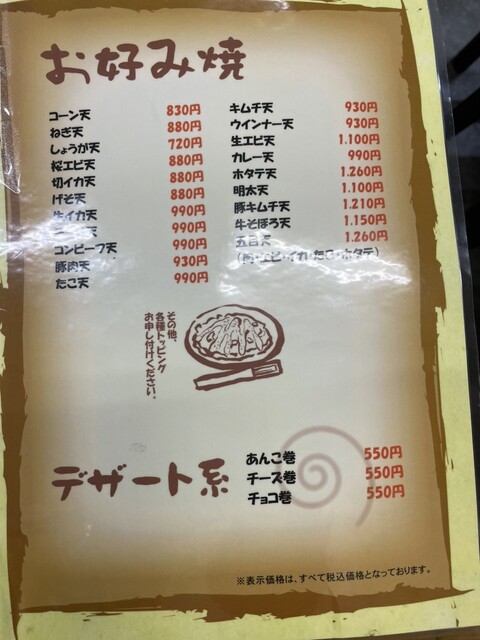 お好み焼
コーン天 830円
ねぎ天 880円
しょうが天 720円
桜エビ天 880円
切イカ天 880円
げそ天 880円
生イカ天 990円
990円
コンビーフ天 990円
豚肉天 930円
たこ天 990円
キムチ天 930円
ウインナー天 930円
生エビ天 1.100円
カレー天 990円
ホタテ天 1.260円
明太天 1.100円
豚キムチ天 1.210円
牛そぼろ天 1.150円
五目天 1.260円
(肉・エビ・イカ・たこ・ホタテ)
その他、
各種トッピング
お申し付けください。
デザート系
あんこ巻 550円
チーズ巻 550円
チョコ巻 550円
※表示価格は、すべて税込価格となっております。